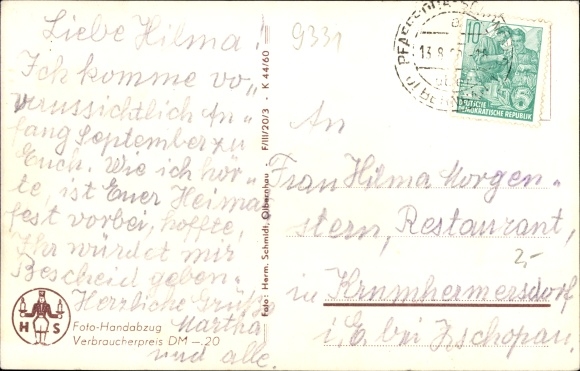 Liebe Hilma!
Ich komme vo"
raussichtlich An"
fang September zu
Euch. Wie ich hör"
te, ist Euer Heimat
fest vorbei, hoffte,
Ihr würdet mir
Bescheid geben.
Herzliche Grüße
Martha
und alle.
HS
Foto-Handabzug
Verbraucherpreis DM —.20
Foto: Herm. Schmidt, Olbernhau - F/III/20/3 - K 44/60
9331
13.8.
10
DEUTSCHE
DEMOKRATISCHE REPUBLIK
An
Frau Hilma Morgen"
stern, Restaurant,
2,-
in Krumhermersdorf
i. E. bei Zschopau.